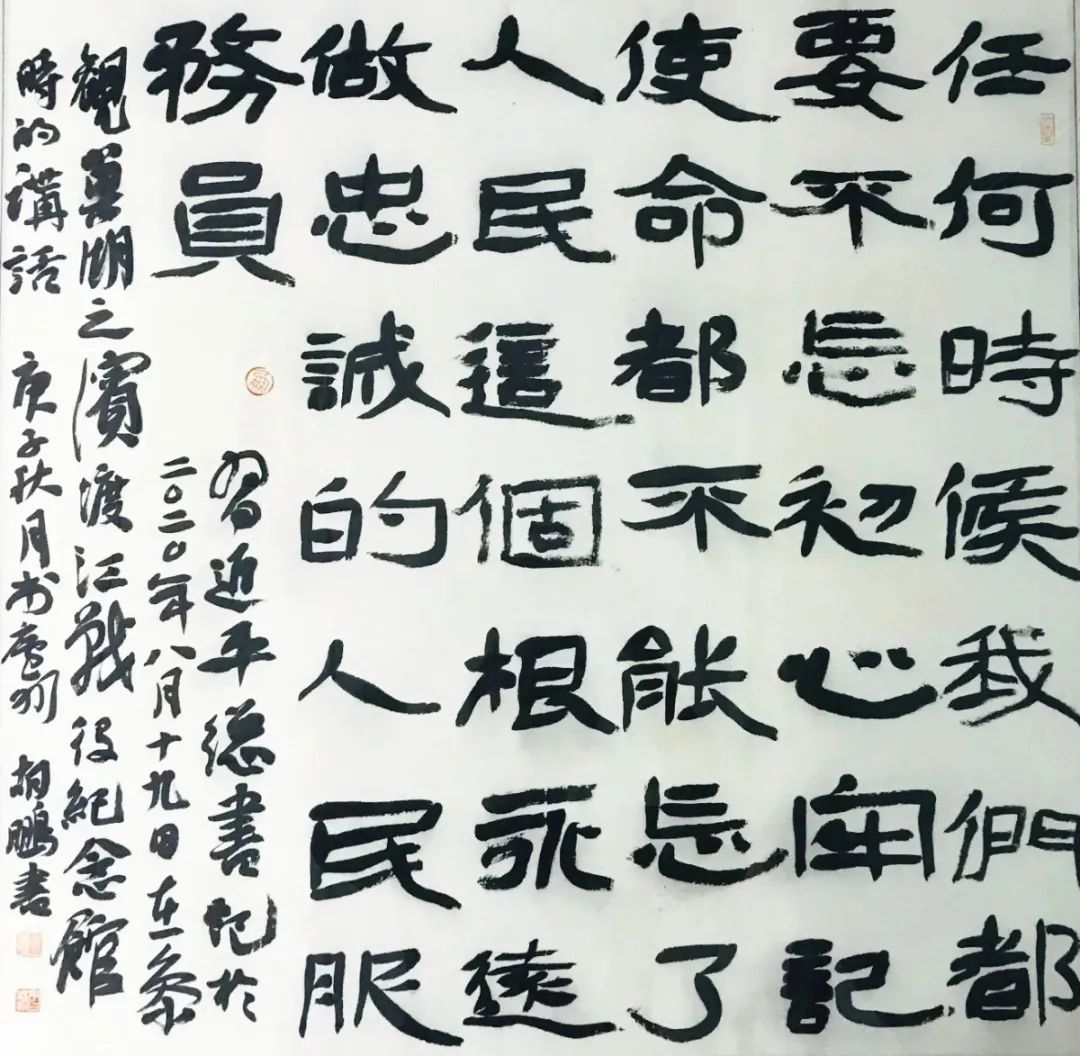 任何時候我們都
要不忘初心牢記
使命都不能忘了
人民這個根永遠
做忠誠的人民服
務員
習近平總書記於
二〇二〇年八月十九日在參
觀巢湖之濱渡江戰役紀念館
時的講話 庚子秋月書廬州 柏鵬書